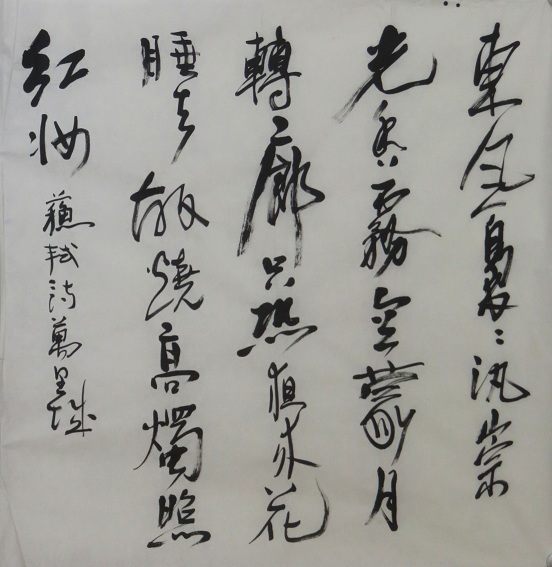 東風裊々汎崇
光香霧空蒙月
轉廊只恐夜深花
睡去故燒高燭照
紅妝
蘇軾詩萬里城